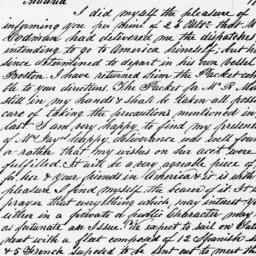 I did myself the pleasure of
informing you
Codman had delivered me the dispatches
intending to go to America himself; but h
since determined to depart in his own vessel
Boston. I have returned him the Packet
to your directions. The Packet for Mr
still in my hands & shall be taken all poss
care of taking the precautions mentioned in
last. I am very happy to find my present
Mrs Jay's happy deliverance was well foun
& rather that my wishes on her acct were
fulfilled. It will be a very agreable piece of
for her & your friends in America & it is with
pleasure I find myself the bearer of it. It is
prayer that everything which may interest yo
either in a private or public Character may
as fortunate an Issue. We expect to sail on
next with a fleet composed of 12 Spanish
& 5 French suposed to be sent out to meet the